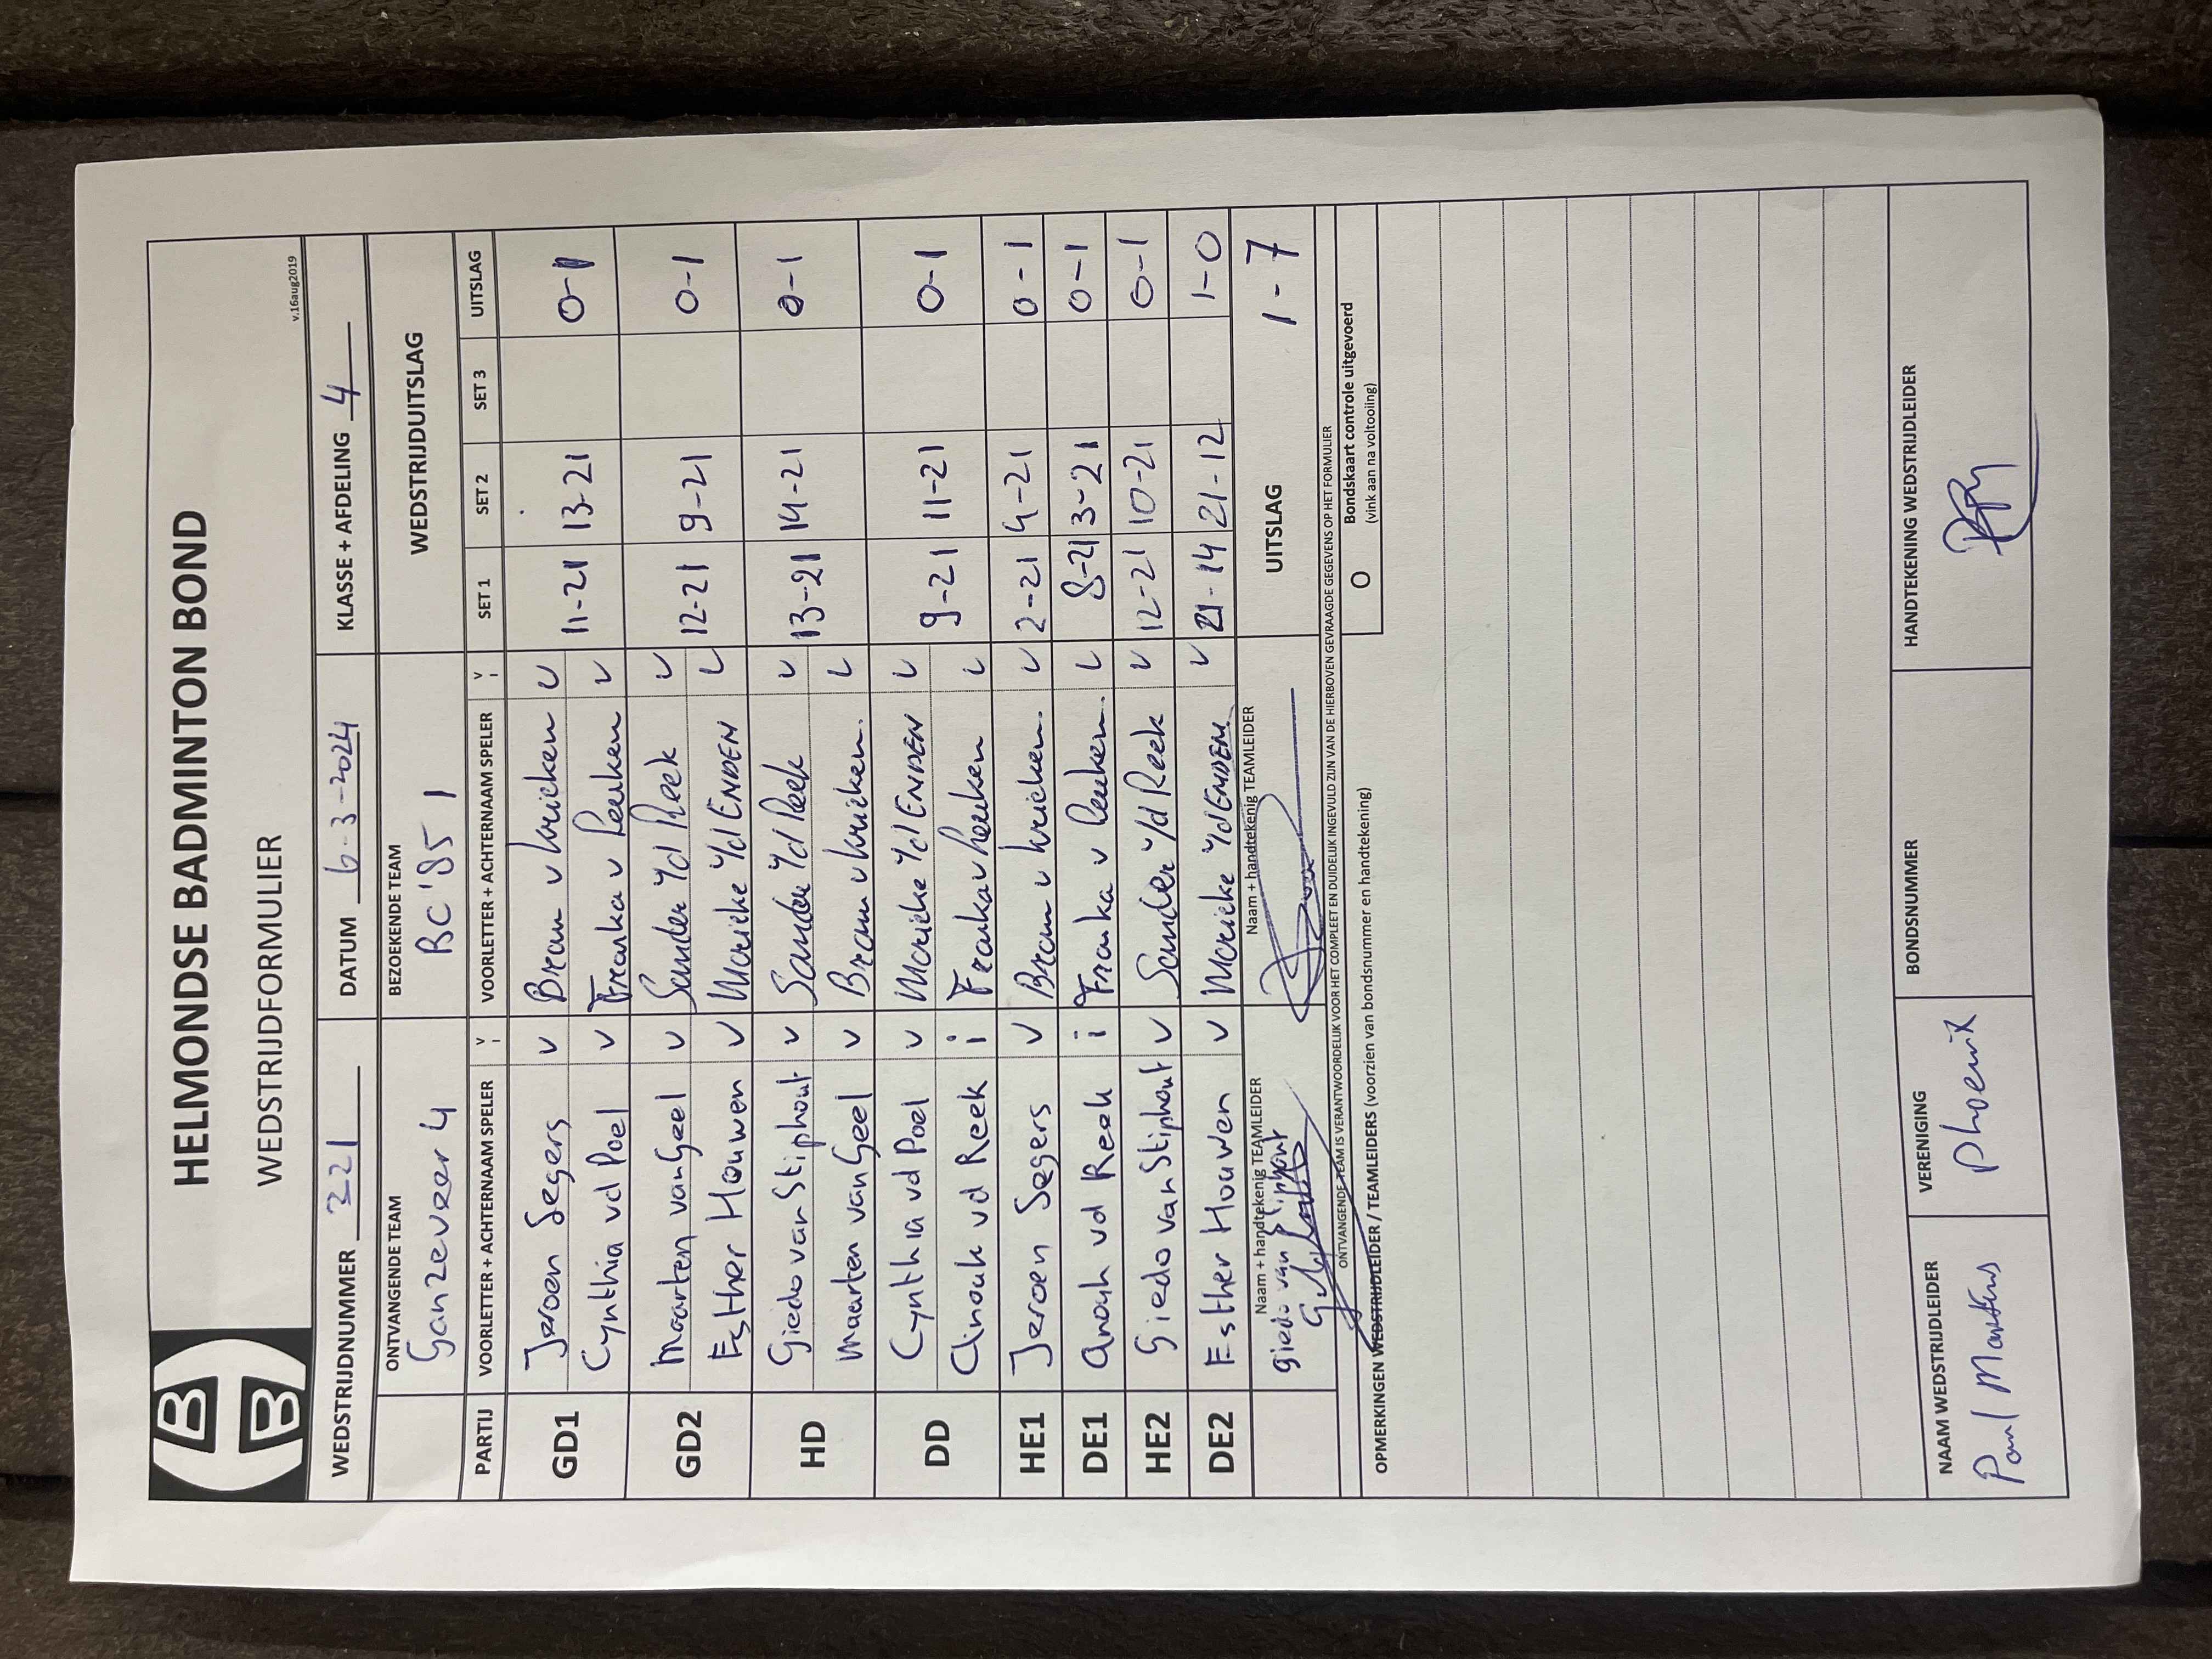 HELMONDSE BADMINTON BOND
WEDSTRIJDFORMULIER
v.16aug2019
WEDSTRIJDNUMMER 321 DATUM 6-3-2024 KLASSE + AFDELING 4
ONTVANGENDE TEAM BEZOEKENDE TEAM WEDSTRIJDUITSLAG
Ganzeveer 4 BC '85 1
PARTIJ VOORLETTER + ACHTERNAAM SPELER V i VOORLETTER + ACHTERNAAM SPELER V i SET 1 SET 2 SET 3 UITSLAG
GD1 Jeroen Segers v Bram v Krieken v 11-21 13-21 0-1
Cynthia vd Poel v Franka v Heuken v
GD2 Maarten van Geel v Sander v/d Reek v 12-21 9-21 0-1
Esther Houwen v Marieke v/d ENDEN v
HD Giedo van Stiphout v Sander v/d Reek v 13-21 14-21 0-1
Maarten van Geel v Bram v Krieken. v
DD Cynthia vd Poel v Marieke v/d ENDEN v 9-21 11-21 0-1
Anouk vd Reek i Franka v Heuken i
HE1 Jeroen Segers v Bram v Krieken. v 2-21 4-21 0-1
DE1 Anouk vd Reek i Franka v Heuken. i 8-21 3-21 0-1
HE2 Giedo van Stiphout v Sander v/d Reek v 12-21 10-21 0-1
DE2 Esther Houwen v Marieke v/d ENDEN. v 21-14 21-12 1-0
Naam + handtekenig TEAMLEIDER Naam + handtekenig TEAMLEIDER UITSLAG 1-7
Giedo van Stiphout
ONTVANGENDE TEAM IS VERANTWOORDELIJK VOOR HET COMPLEET EN DUIDELIJK INGEVULD ZIJN VAN DE HIERBOVEN GEVRAAGDE GEGEVENS OP HET FORMULIER
OPMERKINGEN WEDSTRIJDLEIDER / TEAMLEIDERS (voorzien van bondsnummer en handtekening)
O Bondskaart controle uitgevoerd
(vink aan na voltooiing)
NAAM WEDSTRIJDLEIDER VERENIGING BONDSNUMMER HANDTEKENING WEDSTRIJDLEIDER
Paul Martens Phoenix